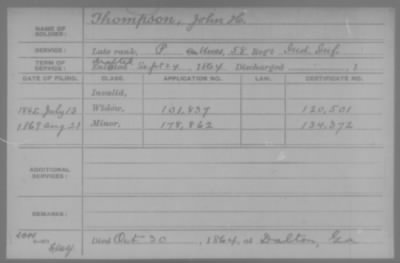 NAME OF SOLDIER: Thompson, John H.
SERVICE: Late rank, P 58 Reg't Ind. Inf
TERM OF SERVICE: Drafted Enlisted Sept 24, 1864 Discharged , 1
DATE OF FILING. CLASS. APPLICATION NO. LAW. CERTIFICATE NO.
Invalid,
1865 July 13 Widow, 101,837 120,501
1869 Aug 21 Minor, 178,862 134,372
ADDITIONAL SERVICES:
REMARKS:
Died Oct 30, 1864, at Dalton, Ga